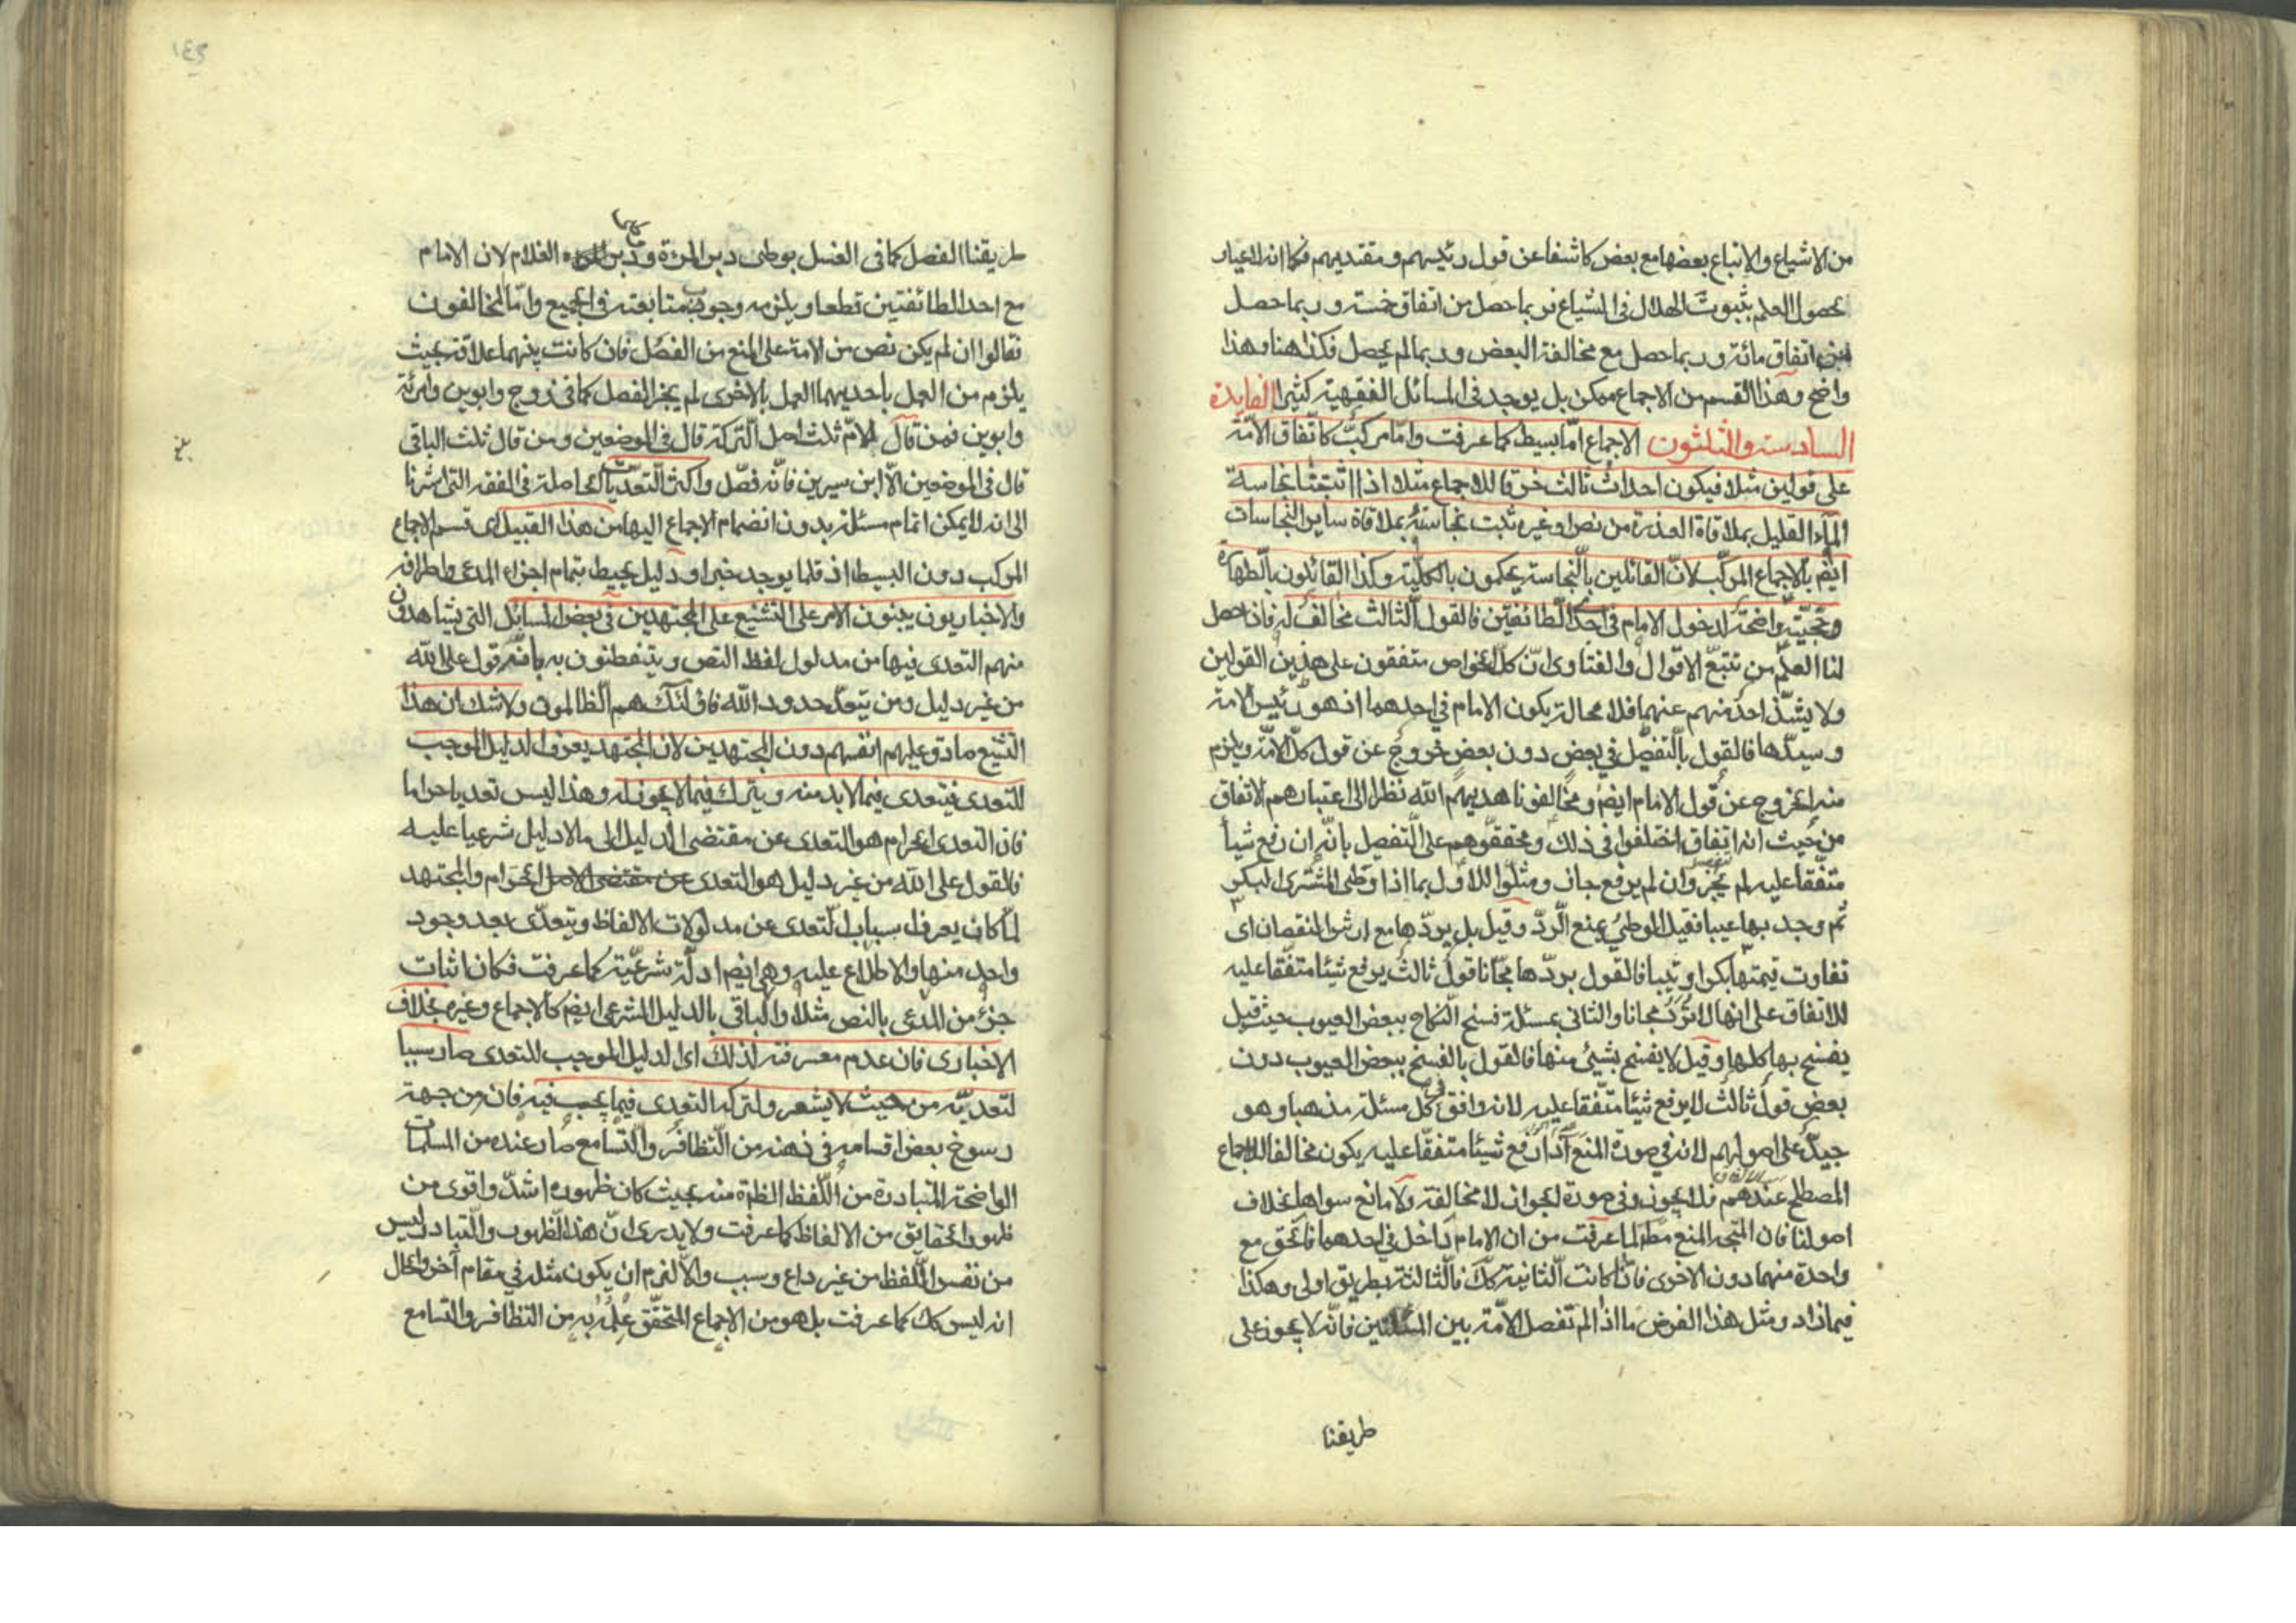 من الاشياع والاتباع بعضها مع بعض كاشفا عن قول رئيسهم ومقتديهم فكما انه لاعيار
بحصول العلم بثبوت الهلال فى الشياع فربما حصل من اتفاق خمسة وربما حصل
اتفاق مائة وربما حصل مع مخالفة البعض وربما لم يحصل فكذا هنا وهذا
واضح وهذا القسم من الاجماع ممكن بل يوجد فى المسائل الفقهية كثيرا الفايدة
السادسة والثلثون الاجماع امّا بسيط كما عرفت وامّا مركّب كاتّفاق الامّة
على قولين مثلا فيكون احداث ثالث خرقا للاجماع مثلا اذا اثبتنا نجاسة
الماء القليل بملاقاة العذرة من نص او غيره ثبت نجاسته بملاقاة ساير النجاسات
ايضم بالاجماع المركّب لانّ القائلين بالنّجاسة يحكمون بالكليّة وكذا القائلون بالطّهارة
وحجّيّته واضحة لدخول الامام فى احد الطّائفتين فالقول الثالث مخالف له فاذا حصل
لنا العلم من تتبّع الاقوال والفتاوى انّ كلّ الخواص متفقون على هذين القولين
ولا يشذّ احد منهم عنهما فلا محالة يكون الامام فى احدهما اذ هو رئيس الامة
وسيدّها فالقول بالتفصّل فى بعض دون بعض خروج عن قول كلّ الامّة ويلزم
منه الخروج عن قول الامام ايضم ومخالفونا هديهم الله نظرا الى اعتبارهم الاتفاق
من حيث انه اتفاق اختلفوا فى ذلك ومحققوهم على التّفصيل بانّه ان رفع شيأ
متفّقا عليه لم يجز وان لم يرفع جاز ومثلّوا للاول بما اذا وطى المشترى البكر
ثم وجد بها عيبا فقيل الوطئ يمنع الرّدّ وقيل بل يردّها مع ارش النقصان اى
تفاوت قيمتها بكرا وثيبا فالقول بردّها مجّانا قول ثالث يرفع شيئا متفّقا عليه
للاتفاق على انها لا تردّ مجانا والثانى بمسئلة فسخ النّكاح ببعض العيوب حيث قيل
يفسخ بها كلها وقيل لا يفسخ بشئ منها فالقول بالفسخ ببعض العيوب دون
بعض قول ثالث لا يرفع شيئا متّفقا عليه لانه وافق فى كل مسئلة مذهبا وهو
جيّد على اصولهم لانه فى صورة المنع اذا رفع شيئا متفقّا عليه يكون مخالفا للاجماع
المصطلح عندهم فلا يجوز وفى صورة الجواز لا مخالفة ولا مانع سواها بخلاف
اصولنا فان المتّجه المنع مطم لما عرفت من ان الامام داخل فى احدهما فالحق مع
واحدة منهما دون الاخرى فاذا كانت الثّانية كلّ فالثّالثة بطريق اولى وهكذا
فيما زاد ومثل هذا الفرض ما اذا لم تفصل الامّة بين المسئلتين فانّه لا يجوز على
طريقنا
طريقنا الفصل كما فى الغسل بوطى دبر المرئة ودبر الغلام لان الامام
مع احد الطائفتين قطعا ويلزمه وجوب متابعته فى الجميع وامّا المخالفون
فقالوا ان لم يكن نص من الامة على المنع من الفصل فان كانت بينهما علاقة بحيث
يلزم من العمل باحديهما العمل بالاخرى لم يجز الفصل كما فى زوج وابوين وامرئة
وابوين فمن قال للامّ ثلث اصل التّركة قال فى الموضعين ومن قال ثلث الباقى
قال فى الموضعين الّا ابن سيرين فانّه فصّل واكثر التّعدّيات الحاصلة فى الفقه التى اشرنا
الى انه لا يمكن اتمام مسئلة بدون انضمام الاجماع اليها من هذا القبيل اى قسم الاجماع
المركب دون البسيط اذ قلما يوجد خبر او دليل يحيط بتمام اجزاء المدعى واطرافه
والاخباريون يبنون الامر على التشنيع على المجتهدين فى بعض المسائل التى يشاهدون
منهم التعدى فيها من مدلول لفظ النص ويتفطنون به بانّه قول على الله
من غير دليل ومن يتعدّ حدود الله فاولئك هم الظّالمون ولا شك ان هذا
التّشنيع صادق عليهم انفسهم دون المجتهدين لان المجتهد يعرف الدليل الموجب
للتعدى فيتعدى فيما لابد منه ويترك فيما لا يجوز له وهذا ليس تعديا حراما
فان التعدى الحرام هو التعدى عن مقتضى الدليل الى ما لا دليل شرعيا عليه
فالقول على الله من غير دليل هو التعدى عن مقتضى الاصل الحرام والمجتهد
لمّا كان يعرف اسباب التّعدى عن مدلولات الالفاظ ويتعدّى بعد وجود
واحد منها والاطلاع عليه وهى ايضم ادلّة شرعيّة كما عرفت فكان اثبات
جزء من المدعى بالنص مثلا والباقى بالدليل الشرعى ايضم كالاجماع وغيره بخلاف
الاخبارى فان عدم معرفته لذلك اى الدليل الموجب للتعدى صار سببا
لتعديّه من حيث لا يشعر ولتركه التعدى فيما يجب فيه فان من جهة
رسوخ بعض اقسامه فى ذهنه من التّظافر والتّسامع صار عنده من المسلمات
الواضحة المتبادرة من اللّفظ الظاهرة منه بحيث كان ظهوره اشدّ واقوى من
ظهور الحقايق من الالفاظ كما عرفت ولا يدرى انّ هذا الظّهور والتّبادر ليس
من نفس اللّفظ من غير داع وسبب والّا لزم ان يكون مثله فى مقام آخر والحال
انه ليس كك كما عرفت بل هو من الاجماع المتحقّق علمه به من التظافر والتسامع